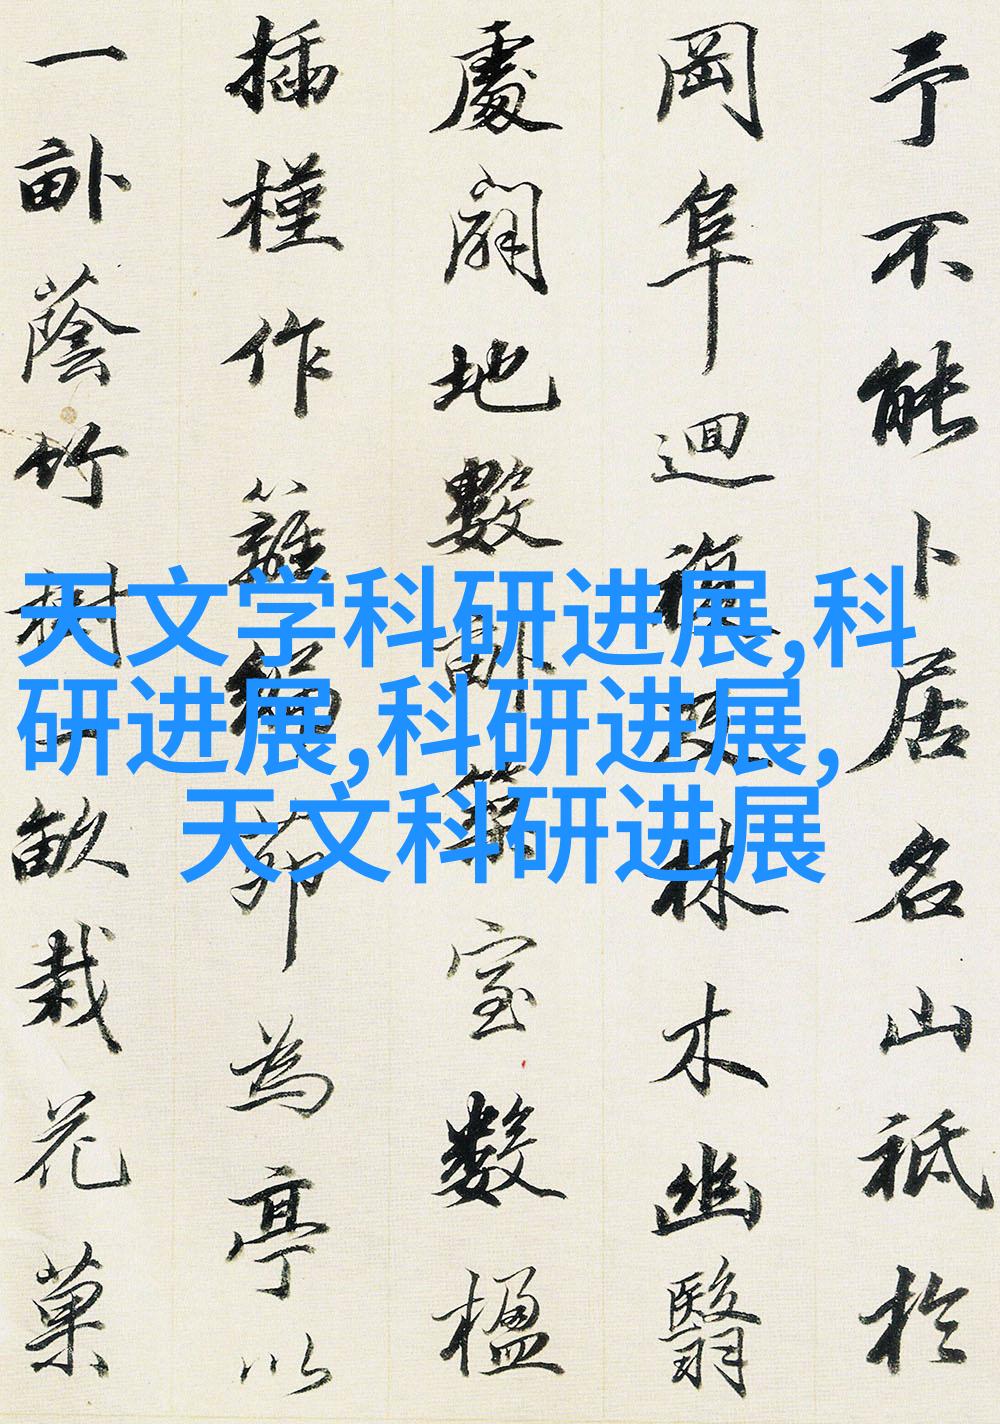 予不能卜居名山祗於
岡阜迴複及林木幽翳
處闢地數畝築室數楹
插槿作籬編茆為亭以
一畝蔭竹樹一畝栽花菓
天文学科研进展,科
研进展,科研进展,
天文科研进展